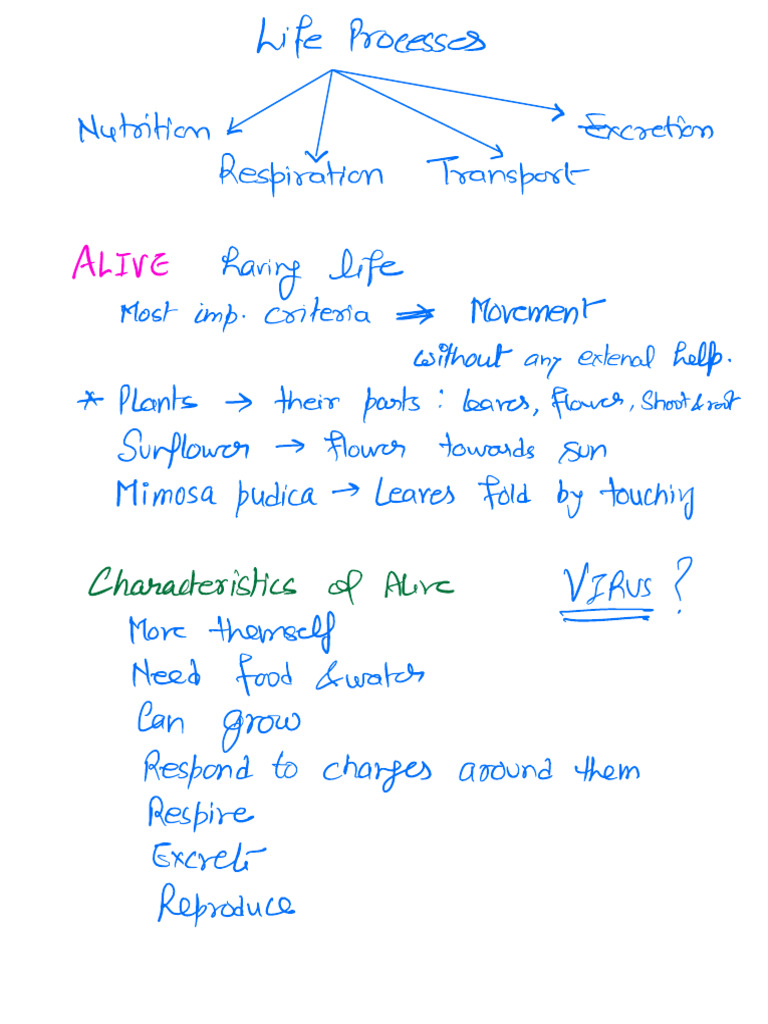 Life Processes
Nutrition
Excretion
Respiration
Transport
ALIVE having life
Most imp. criteria ⇒ Movement
without any extenal help.
* Plants → their parts : leaves, flower, Shoot & root
Sunflower → flower towards sun
Mimosa pudica → Leaves fold by touching
Characteristics of Alive
VIRUS ?
Move themself
Need food & water
Can grow
Respond to changes around them
Respire
Excrete
Reproduce